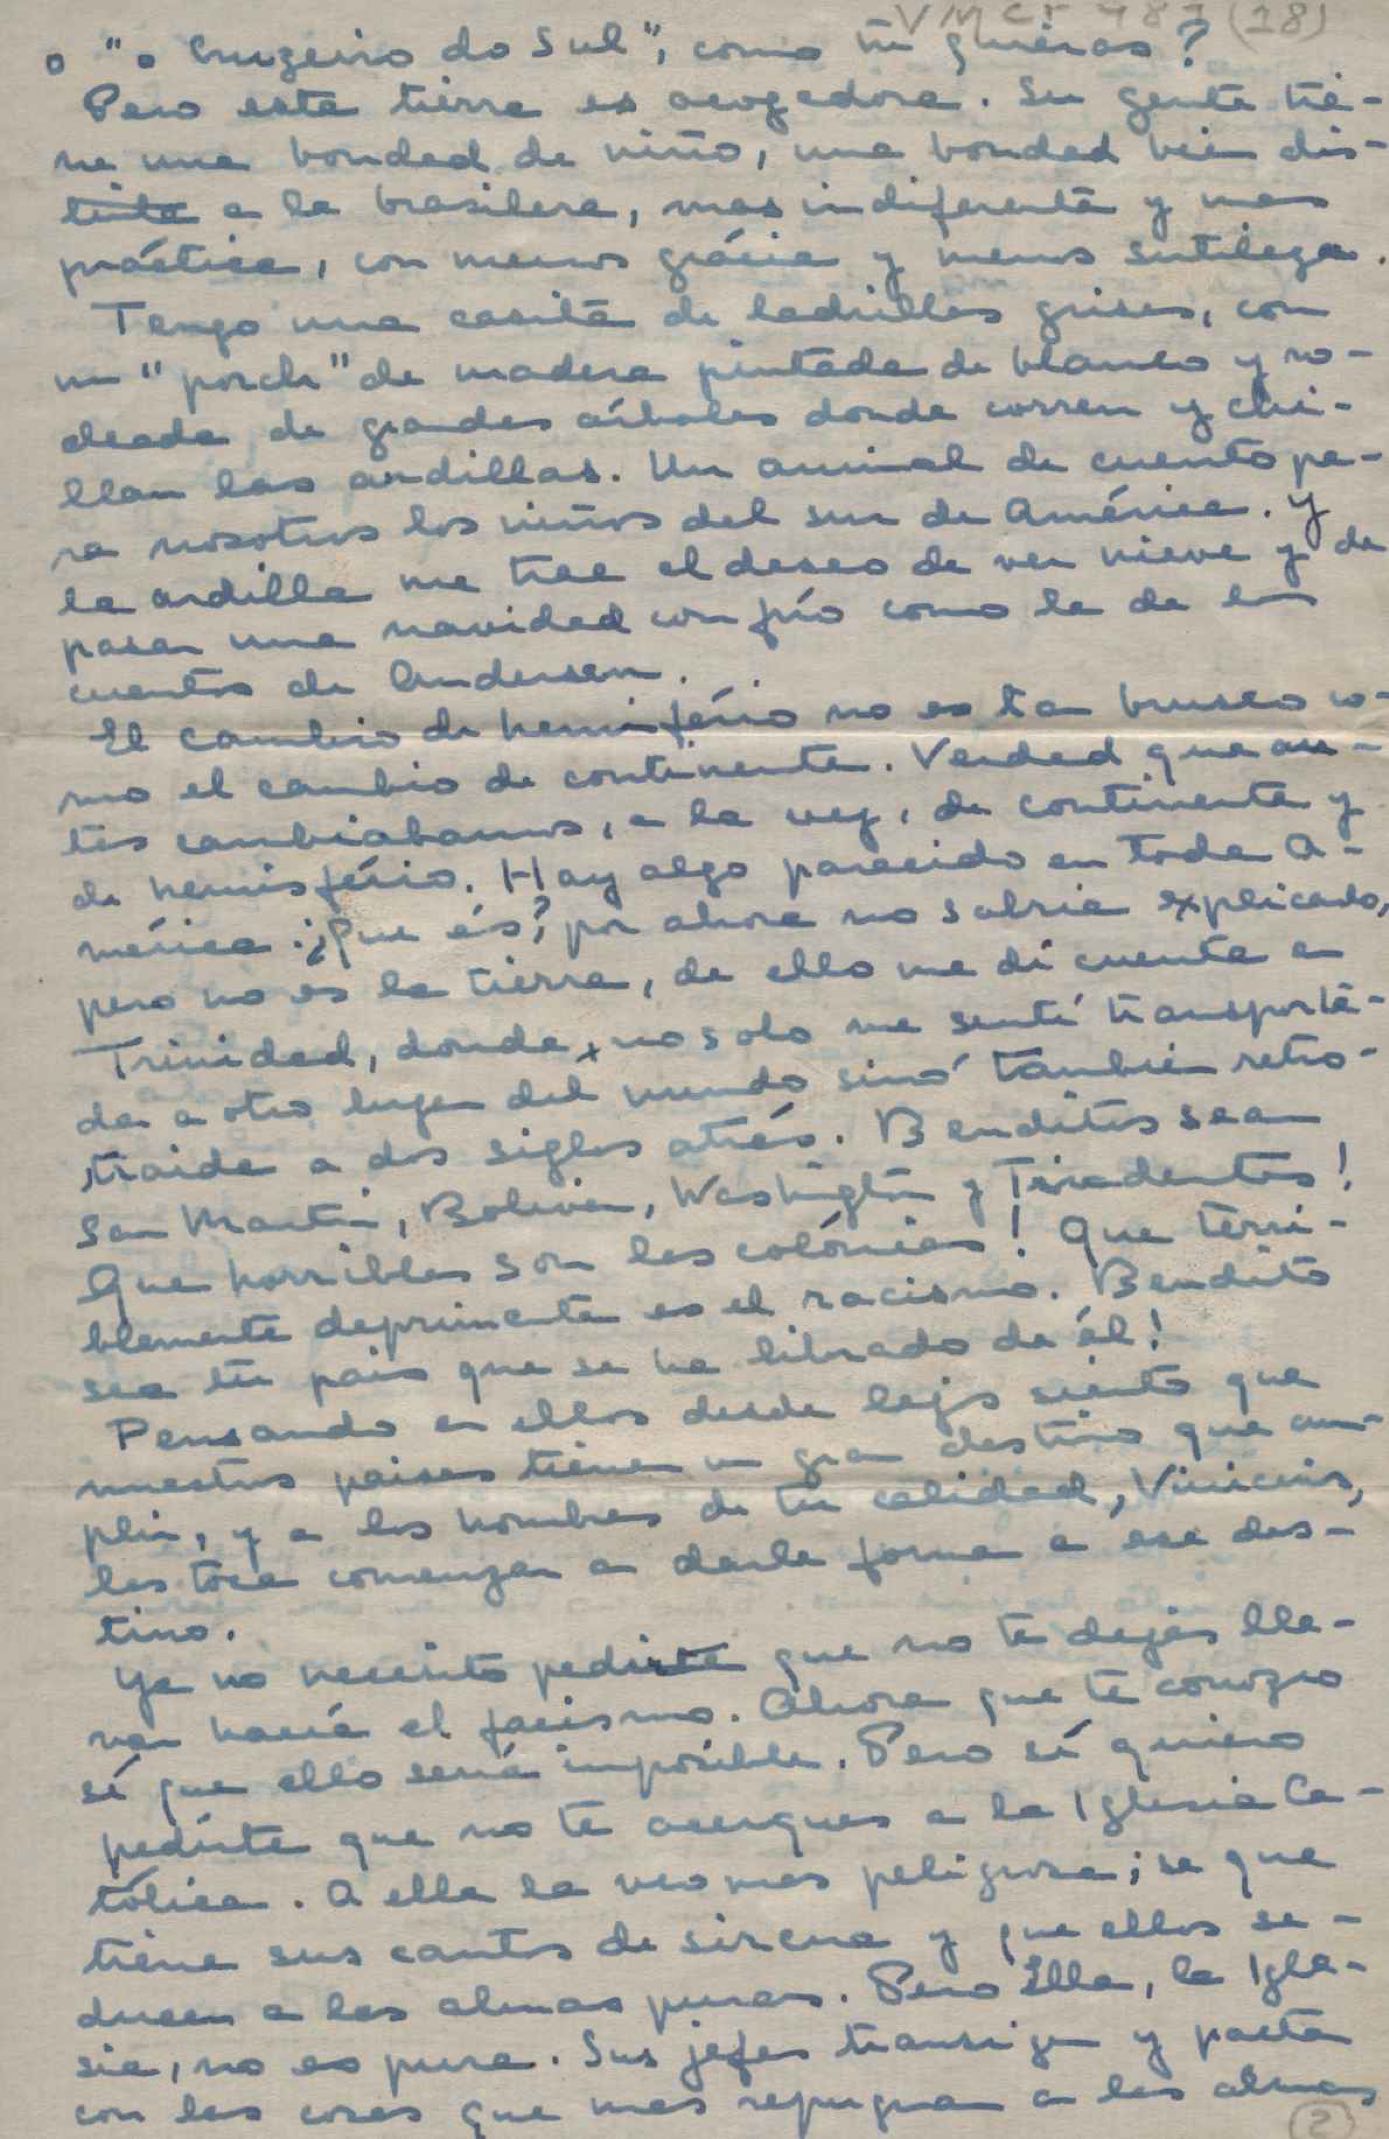 VMCP 487 (18)
o "o Cruzeiro do Sul", como tu quieras?
Pero esta tierra es acogedora. Su gente tie-
ne una bondad de niño, una bondad bien dis-
tinta a la brasilera, mas indiferente y mas
práctica, con menos grácia y menos sutileza.
Tengo una casita de ladrillos grises, con
un "porch" de madera pintada de blanco y ro-
deada de grandes árboles donde corren y chi-
llan las ardillas. Un animal de cuento pa-
ra nosotros los niños del sur de América. Y
la ardilla me trae el deseo de ver nieve y de
pasar una navidad con frío como la de los
cuentos de Andersen.
El cambio de hemisfério no es tan brusco co-
mo el cambio de continente. Verdad que an-
tes cambiabamos, a la vez, de continente y
de hemisfério. Hay algo parecido en toda A-
mérica. ¿Que és? por ahora no sabria explicarlo,
pero no es la tierra, de ello me dí cuenta en
Trinidad, donde, no solo me sentí transporta-
da a otro lugar del mundo sinó tambien retro-
traida a dos siglos atrás. Benditos sean
San Martin, Bolivar, Washington y Tiradentes!
Que horribles son las colónias! Que terri-
blemente deprimente es el racismo. Bendito
sea tu pais que se ha librado de él!
Pensando en ellos desde lejos siento que
nuestros paises tienen un gran destino que cum-
plir, y a los hombres de tu calidad, Vinicius,
les toca comenzar a darle forma a ese des-
tino.
Ya no necesito pedirte que no te dejes lle-
var hacia el facismo. Ahora que te conozco
sé que ello seria imposible. Pero sí quiero
pedirte que no te acerques a la Iglesia Ca-
tólica. A ella la veo mas peligrosa; se que
tiene sus cantos de sirena y que ellos se-
ducen a las almas puras. Pero Ella, la Igle-
sia, no es pura. Sus jefes transigen y pactan
con las cosas que mas repugnan a las almas
2